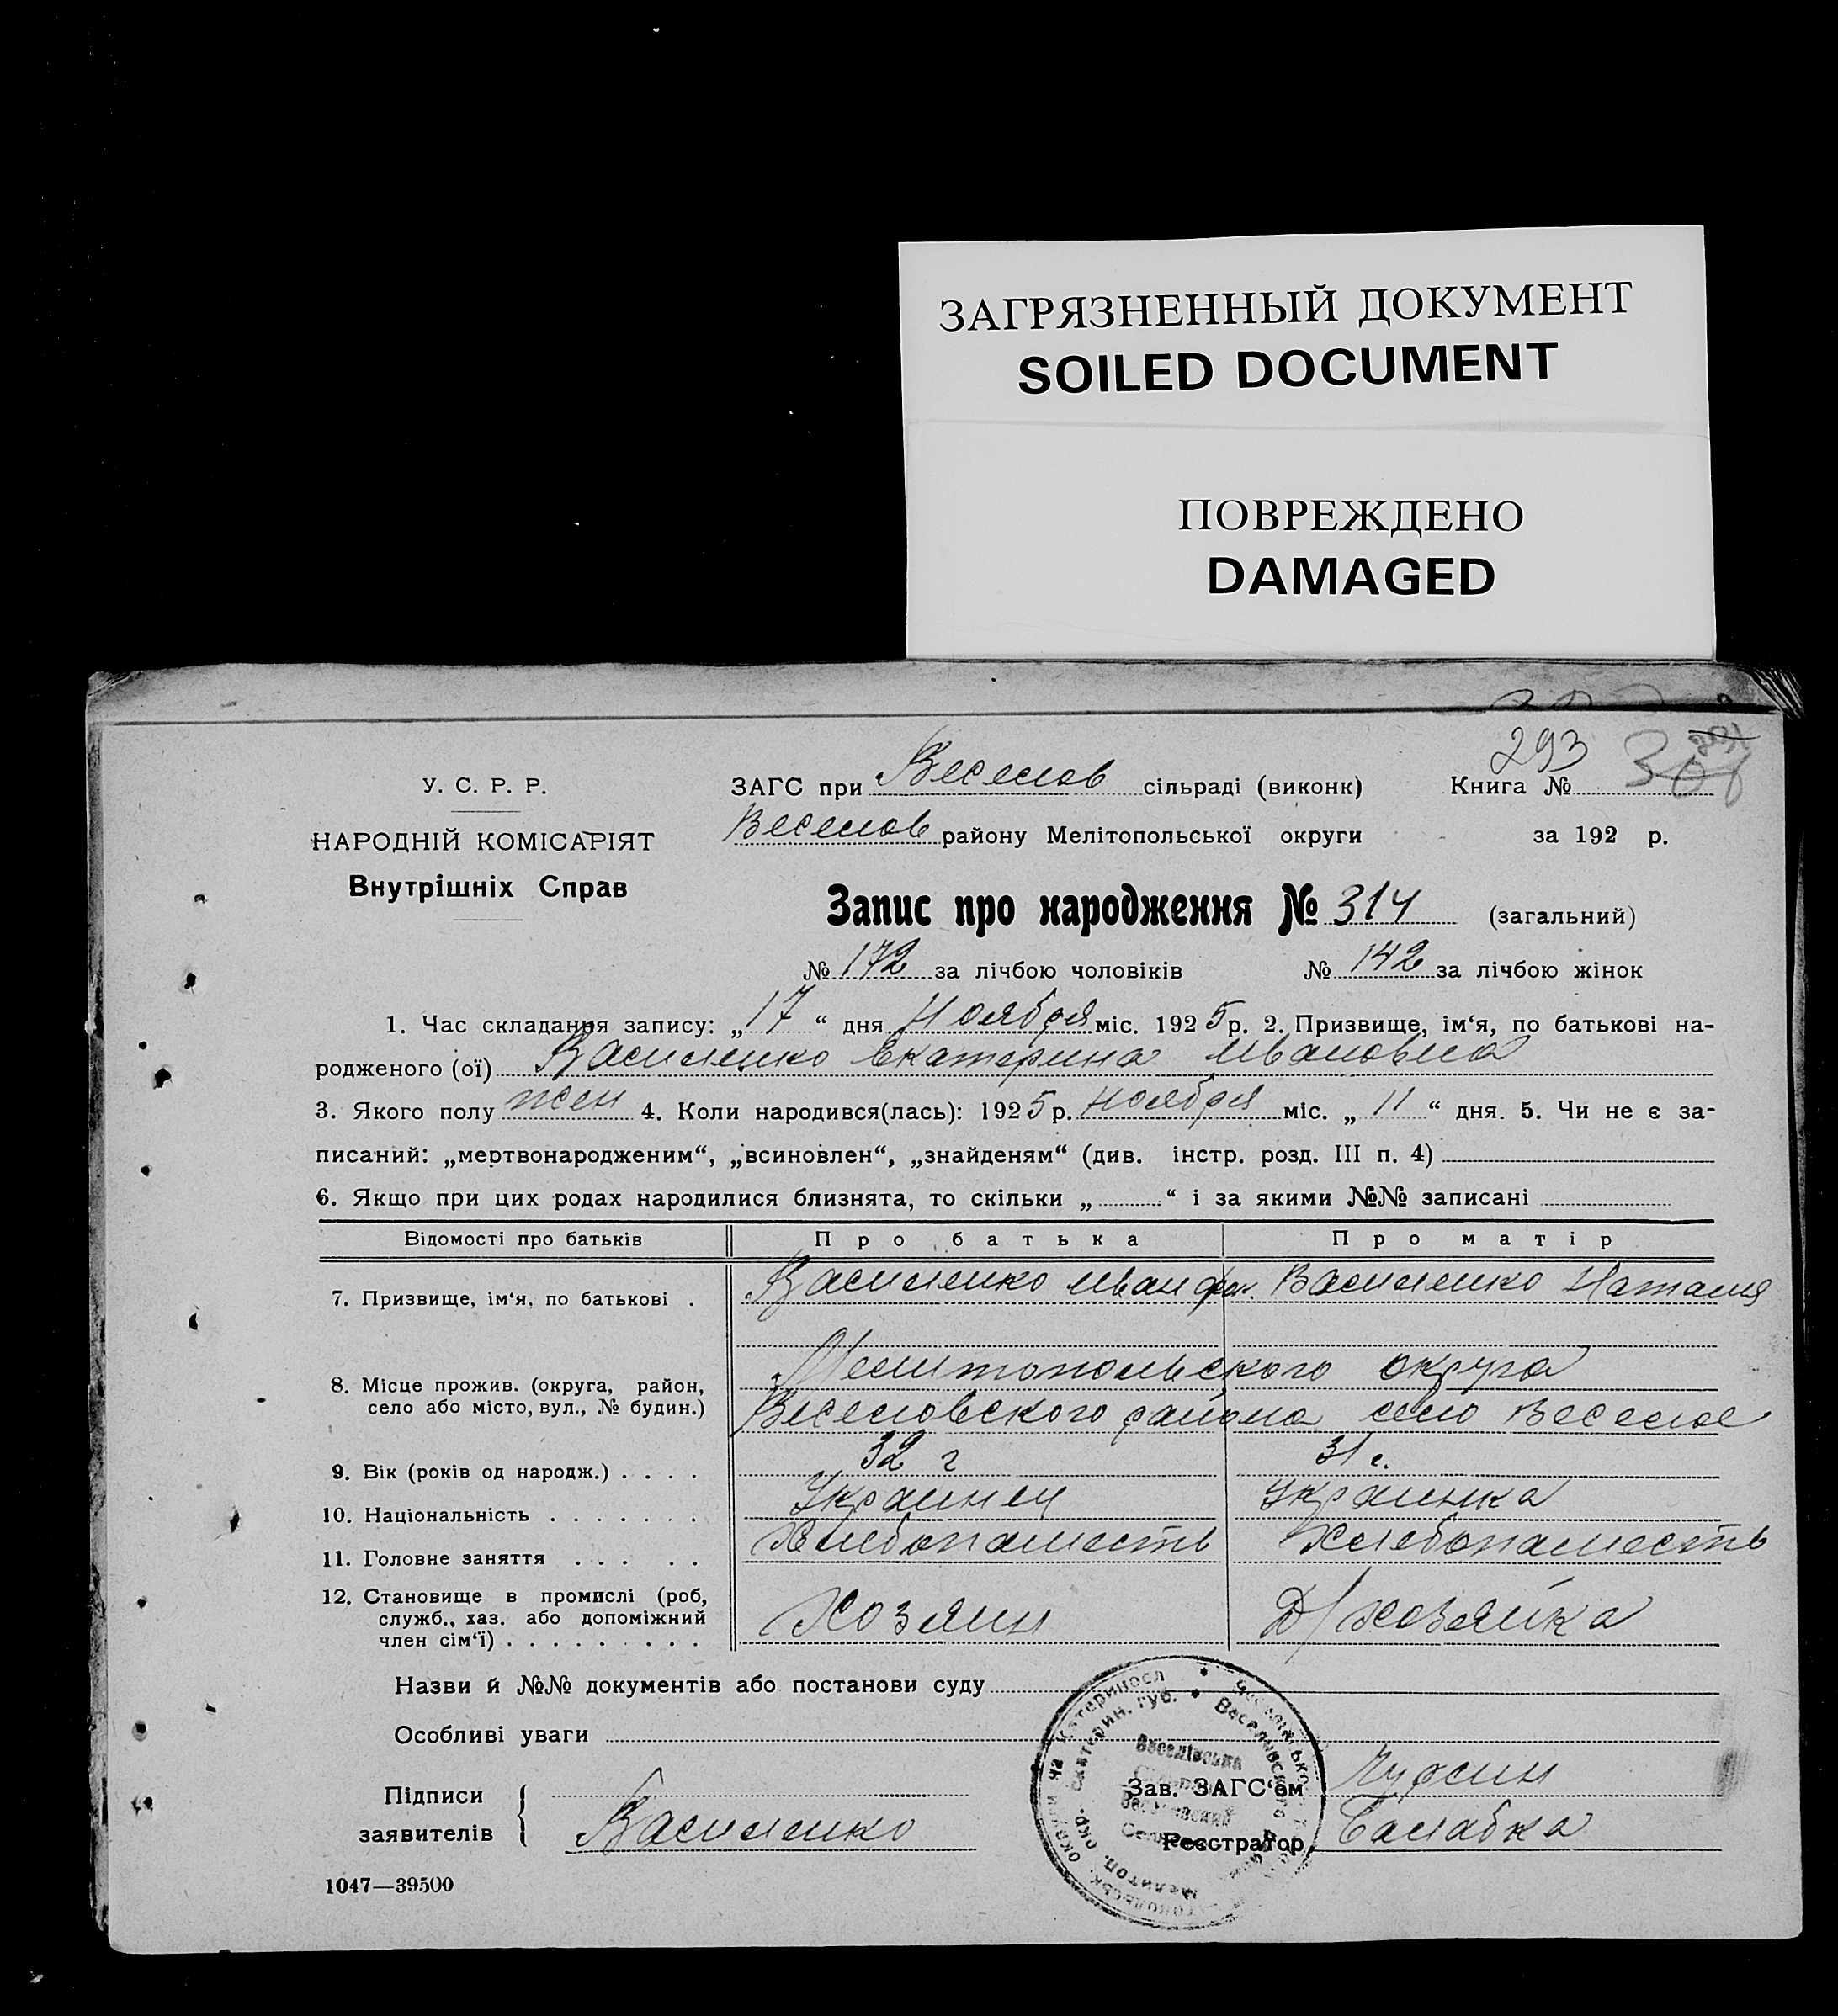 ЗАГРЯЗНЕННЫЙ ДОКУМЕНТ
SOILED DOCUMENT
ПОВРЕЖДЕНО
DAMAGED
293
У. С. Р. Р.
НАРОДНІЙ КОМІСАРІЯТ
Внутрішніх Справ
ЗАГС при Веселов сільраді (виконк) Книга №
Веселов району Мелітопольської округи за 192 р.
Запис про народження № 314 (загальний)
№ 172 за лічбою чоловіків № 142 за лічбою жінок
1. Час складання запису: „17“ дня Ноября міс. 1925 р. 2. Призвище, ім‘я, по батькові на-
родженого (ої) Василенко Екатерина Ивановна
3. Якого полу жен 4. Коли народився(лась): 1925 р. ноября міс. „11“ дня. 5. Чи не є за-
писаний: „мертвонародженим“, „всиновлен“, „знайденям“ (див. інстр. розд. III п. 4)
6. Якщо при цих родах народилися близнята, то скільки „ “ і за якими №№ записані
Відомості про батьків Про батька Про матір
7. Призвище, ім‘я, по батькові . Василенко Иван Василенко Наталия
8. Місце прожив. (округа, район, Мелитопольского округа
село або місто, вул., № будин.) Веселовского района село Веселое
9. Вік (років од народж.) . . . . 32 г 31 г.
10. Національність . . . . . . . Украинец Украинка
11. Головне заняття . . . . . Хлебопашество Хлебопашество
12. Становище в промислі (роб,
служб., хаз. або допоміжний Хозяин Д/хозяйка
член сім‘ї) . . . . . . . . .
Назви й №№ документів або постанови суду
Особливі уваги
Підписи Зав. ЗАГС‘ом Чурсин
заявителів Василенко Реєстратор Балабка
1047—39500